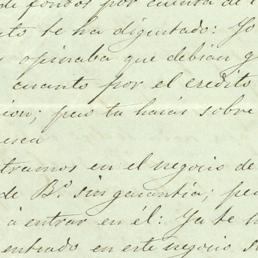 de fondos por cuenta de l
to te ha dignitado: Yo
s opinaba que debian g
cuanto por el credito
cion; pero tu harás sobre

tramos en el negocio de
de B.s sin garantía; pe
á entrar en él: Ya te h
entrado en este negocio s